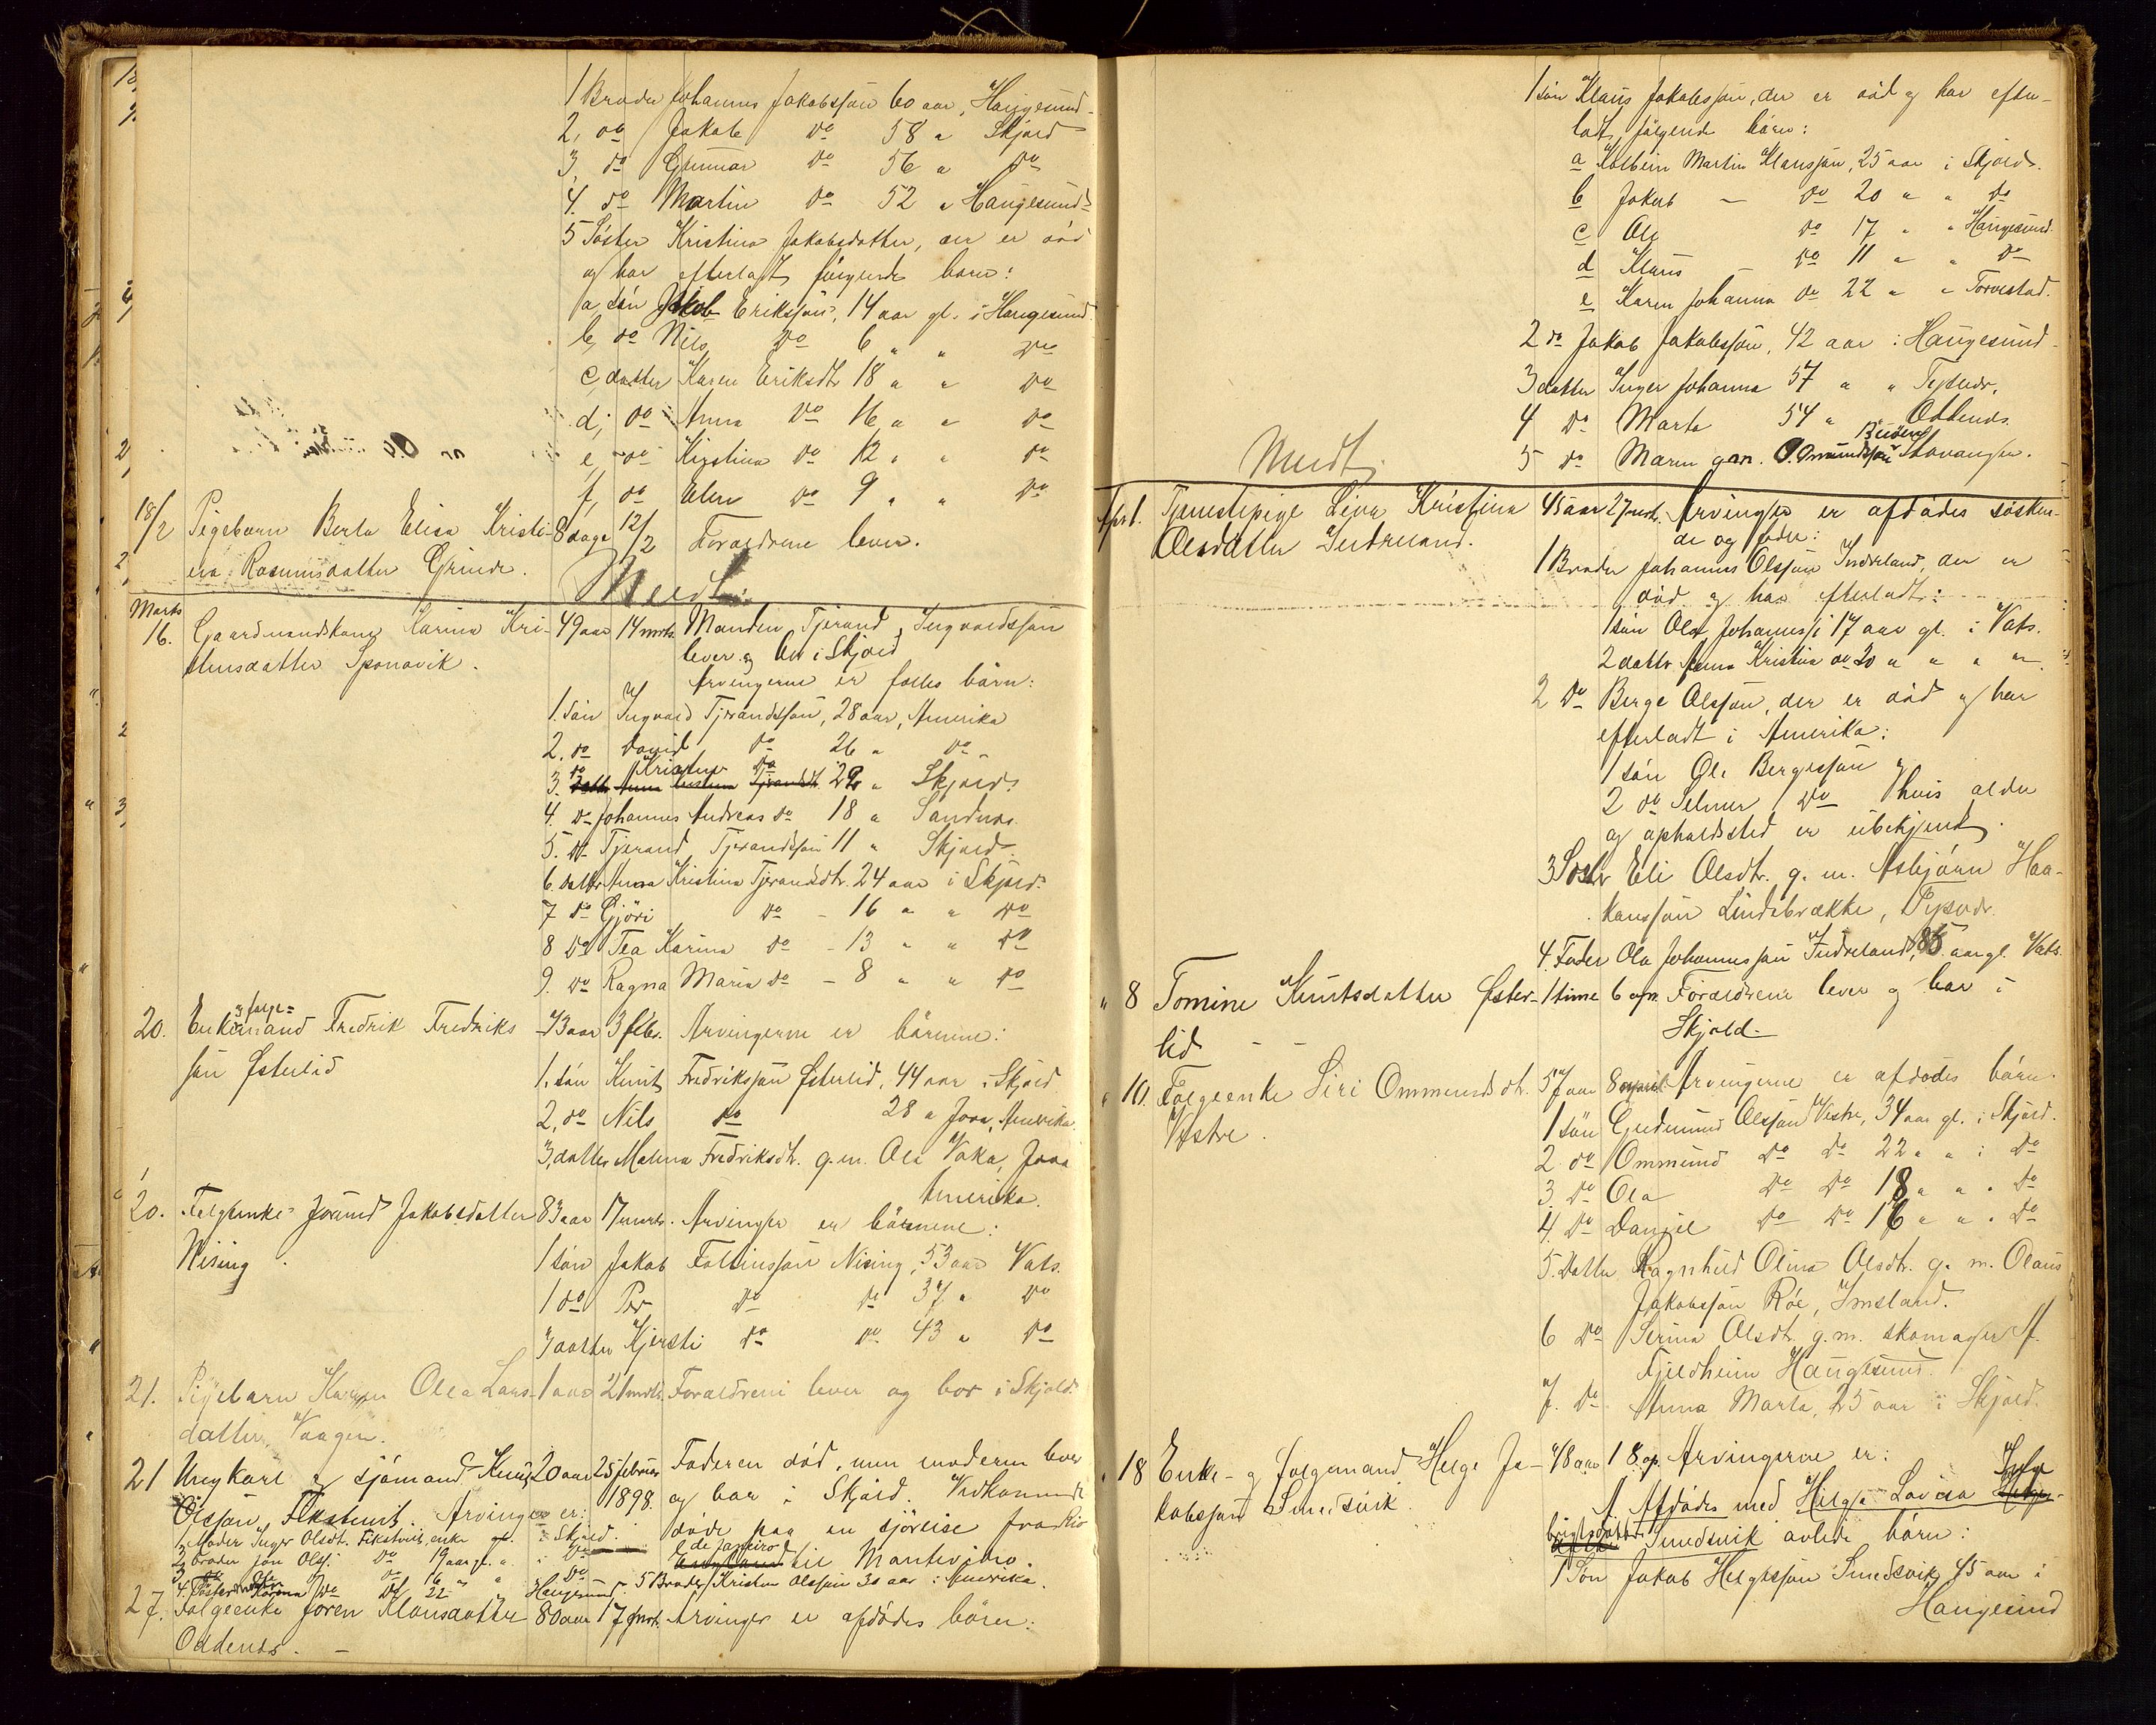 1 Broder Johannes Jakobssøn 60 aar, Haugesund
2, do Jakob do 58 " Skjold
3, do Gunnar do 56 " do
4. do Martin do 52 " Haugesund
5 Søster Kristina Jakobsdatter, der er død
og har efterladt følgende børn:
a, søn Jakob Erikssøn, 14 aar gl. i Haugesund
b, do Nils do 6 " " do
c, datter Karen Eriksdtr 18 " " do
d, do Anna do 16 " " do
e, do Kirstina do 12 " " do
f, do Elen do 9 " " do
18/2 Pigebarn Berta Elisa Kristi- 8 dage 12/2 Forældrene lever.
na Rasmusdatter Grinde.
Meedt:
Marts
16. Gaardmandskone Karina Kri- 49 aar 14 mrts. Manden Tjerand Ingvaldssøn
stensdatter Sponavik. lever og bor i Skjold
Arvingerne er fælles børn:
1. Søn Ingvald Tjerandssøn, 28 aar, Amerika
2. do David do 26 " do
3. do Kristen do 22 " Skjold
4. do Johannes Andreas do 18 " Sandnes
5. do Tjerand Tjerandssøn 11 " Skjold
6. Datter Anna Kristina Tjerandsdtr. 24 aar i Skjold
7 do Gjøri do - 16 " " do
8 do Tea Karina do - 13 " " do
9. do Ragna Maria do - 8 " " do
20. Enke og følge=mand Fredrik Fredriks- 73 aar 3 febr. Arvingerne er børnene:
søn Østerlid
1. søn Knut Fredrikssøn Østerlid, 44 aar i Skjold
2, do Nils do 28 " Jova, Amerika
3, datter Malena Fredriksdtr. g.m. Ole Vaka, Jova
Amerika.
20. Følgeenke Jorund Jakobsdatter 83 aar 17 marts. Arvinger er børnene:
Nising.
1 søn Jakob Nising, 53 aar Vats.
1 do Per do do 37 " do
3 datter Kjersti do do 43 " do
21. Pigebarn Karen Olea Lars- 1 aar 21 mrts. Forældrene lever og bor i Skjold.
datter Vaagen.
21 Ungkarl og sjømand Knut 20 aar 25 februar Faderen død, men moderen lever
Olssøn Fikstveit. Arvinger er: 1898. og bor i Skjold. Vedkommende
1 Moder Inger Olsdt. Fikstveit, enke gl. i Skjold. døde paa en sjøreise fra Rio
2, broder Jon Olss. do 19 aar gl. " i do de Janeiro til Mantevideo.
3 do do 16 " " do 5 Broder Kristen Olssøn 30 aar i Amerika.
4. Søster Karina do do 22 " " Haugesund
27. Følgeenke Joren Klausdatter 80 aar 17 mrts. Arvinger er afdødes børn:
Oddenes. -
1 søn Klaus Jakobssøn, der er død og har efter-
ladt følgende børn:
a Kolbein Martin Klaussøn, 25 aar i Skjold.
b Jakob - do 20 " " do
c Ole do 17 " " Haugesund
d Klaus - do 11 " " do
e Karen Johanna do 22 " " Torvestad.
2 do Jakob Jakobssøn, 42 aar i Haugesund
3 datter Inger Johanna 57 " " Tysvær.
4 do Marta 54 " " Oddenes.
5 do Maren g.m. O. Omundssøn Stavanger.
Meedt.
Aprl. Tjenestepige Lina Kristina 45 aar 27 mrts. Arvinger er afdødes søsken-
Olsdatter Indreland. de og fader:
1 Broder Johannes Olssøn Indreland, der er
død og har efterladt:
1 søn Ola Johanness. 17 aar gl. i Vats.
2 datter Anna Kristina do 20 " " " "
2 do Berge Olssøn, der er død og har
efterladt i Amerika:
1 søn Ole Bergessøn og
2 do Selmer do hvis alder
og opholdssted er ubekjendt.
3 Søster Eli Olsdtr. g. m. Asbjørn Haa-
kanssøn Lindabrække, Tysvær.
4. Fader Ola Johannessøn Indreland, 85 aar gl. Vats.
" 8 Tomine Knutsdatter Øster- 1 time 6 apr. Forældrene lever og bor i
lid - - Skjold
" 10. Følgeenke Siri Ommundsdtr. 57 aar 8 april Arvingerne er afdødes børn.
Vestre.
1 søn Gudmund Olssøn Vestre, 34 aar gl. i Skjold.
2 do Ommund do do 22 " " i do
3. do Ola do do 18 " " " do
4. do Daniel do do 16 " " " do
5. Datter Ragnhild Olina Olsdtr. g. m. Olaus
Jakobssøn Røe, Imsland.
6 do Serina Olsdtr. g.m. skomager A.
Fjeldheim Haugesund.
7. do Anna Marta, 25 aar i Skjold.
" 18 Enke- og følgemand Helge Ja- 78 aar 18 ap. Arvingerne er:
kobssøn Smedsvik.
A Afdødes med Helga Lovisa
Smedsvik avlede børn:
1 Søn Jakob Helgessøn Smedsvik 45 aar i
Haugesund